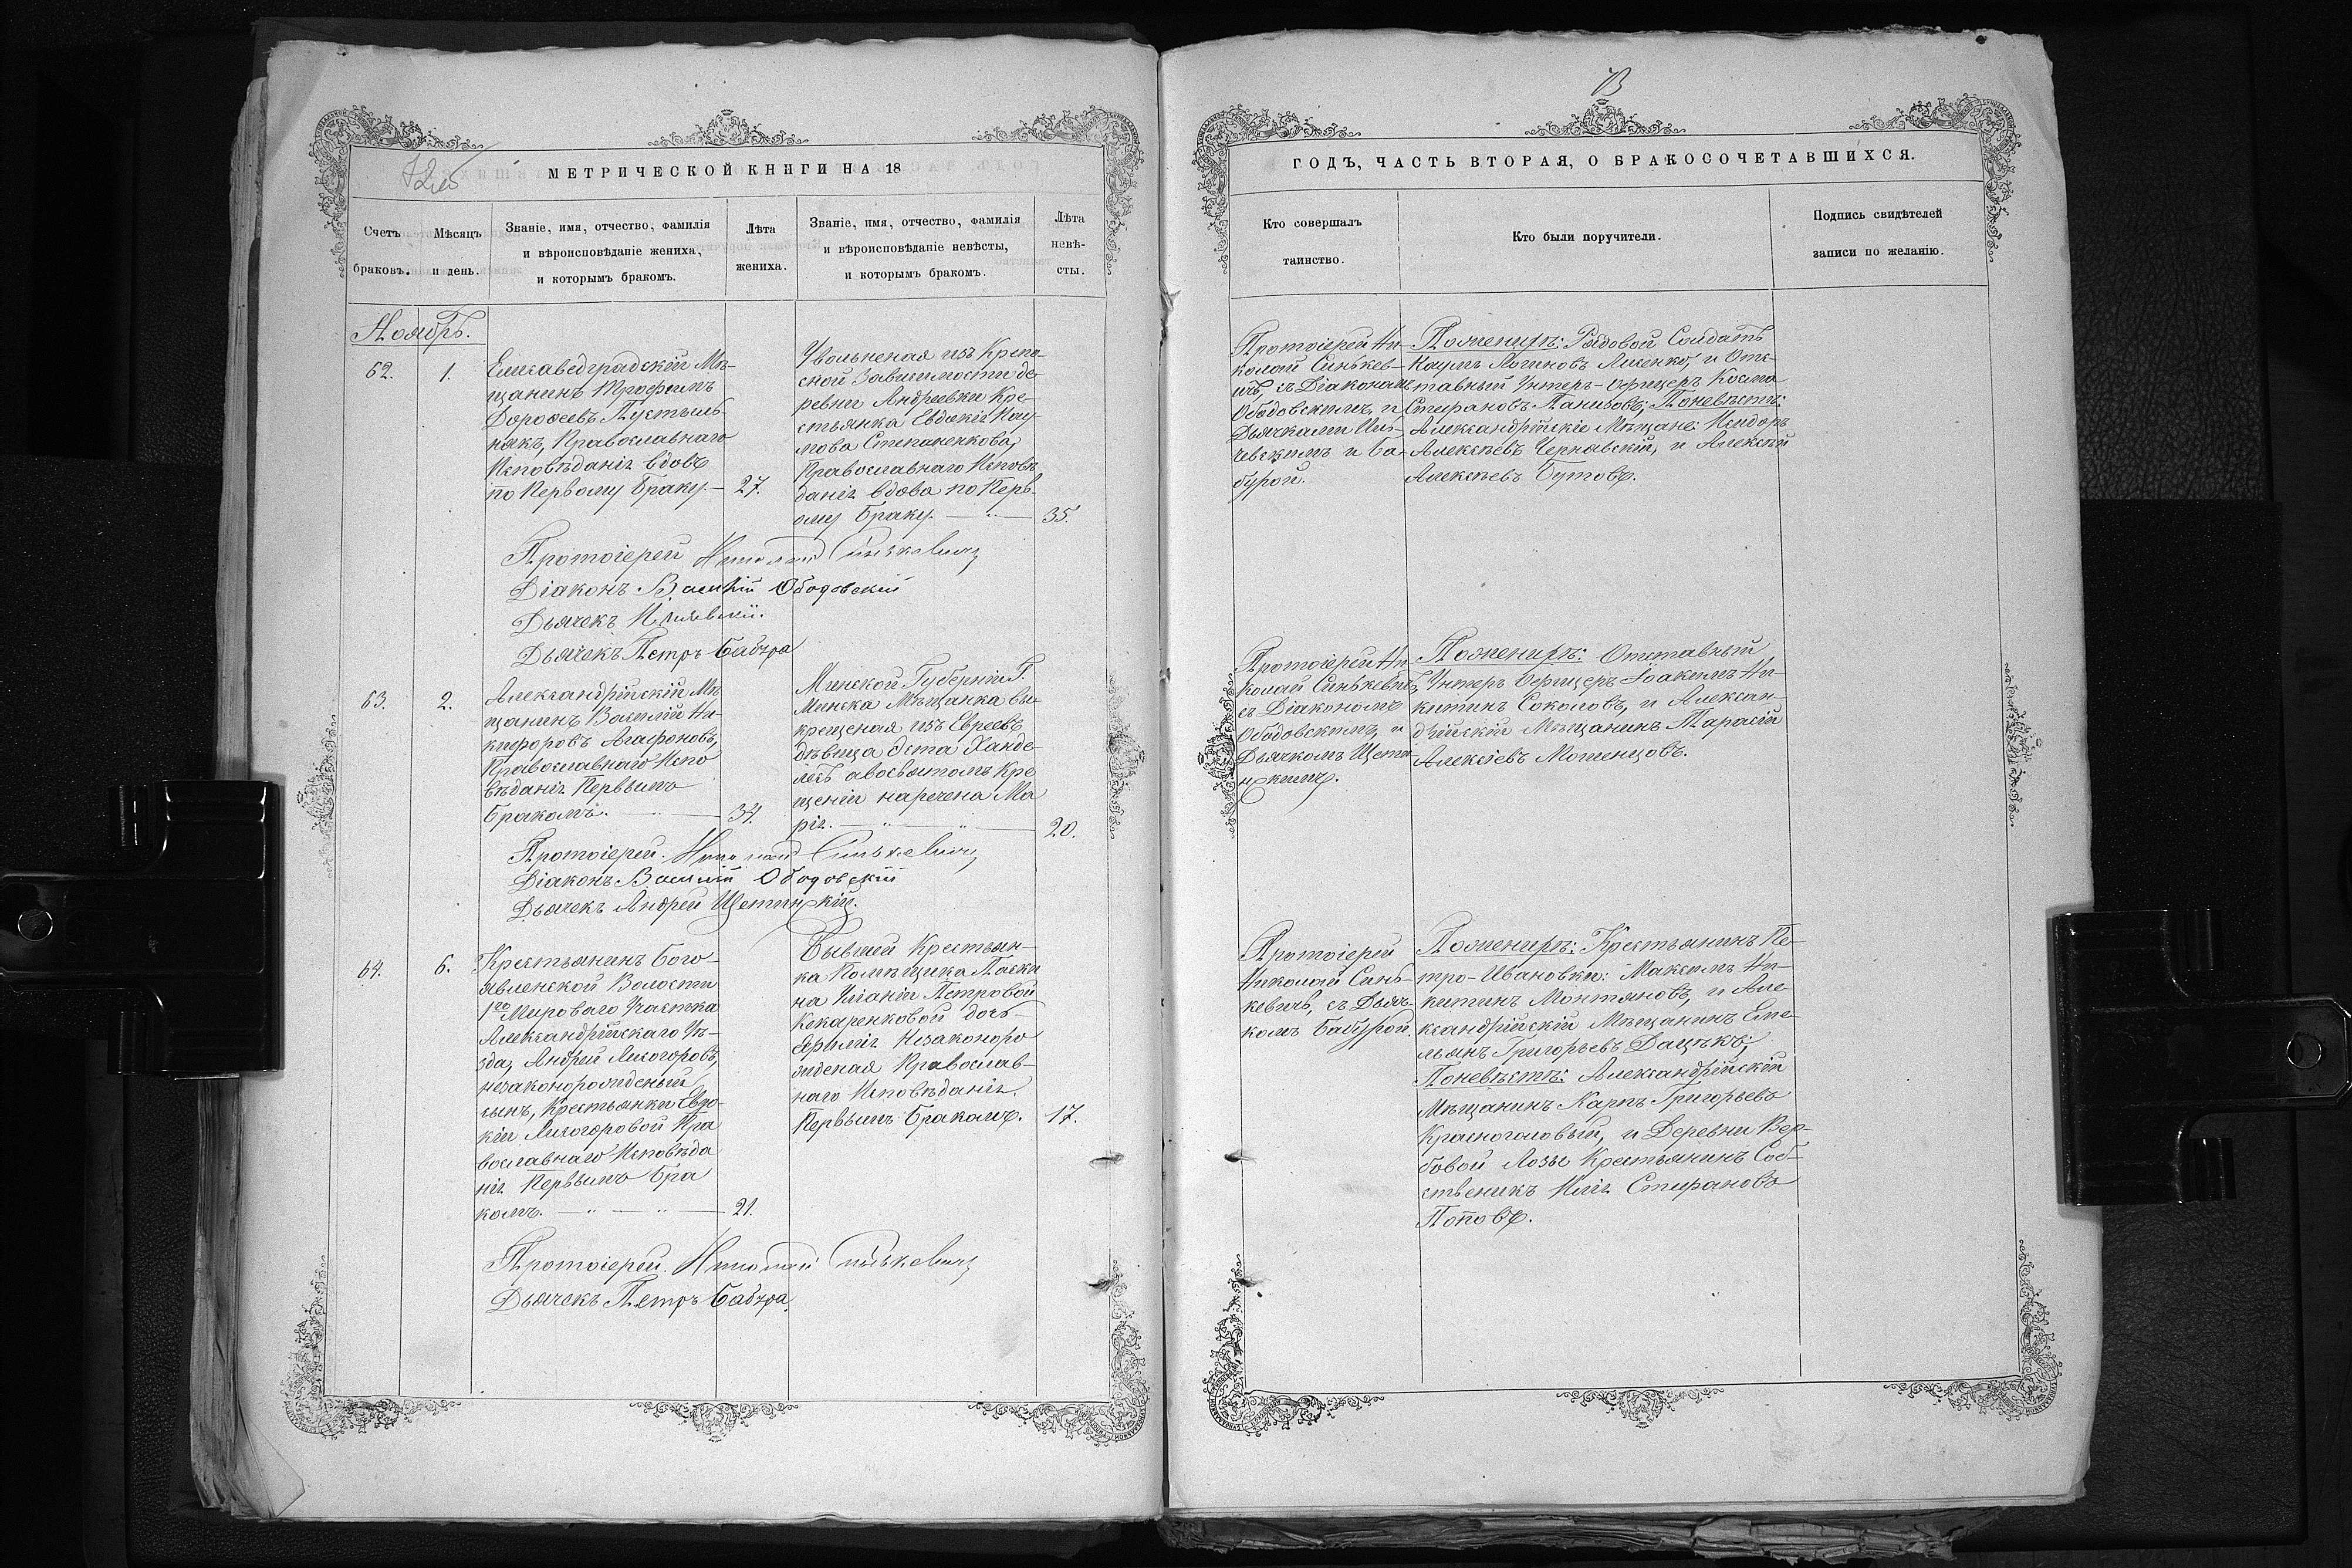 МЕТРИЧЕСКОЙ КНИГИ НА 18
Счетъ
браковъ.
Мѣсяцъ
и день.
Званіе, имя, отчество, фамилія
и вѣроисповѣданіе жениха,
и которымъ бракомъ.
Лѣта
жениха.
Званіе, имя, отчество, фамилія
и вѣроисповѣданіе невѣсты,
и которымъ бракомъ.
Лѣта
невѣ-
сты.
Ноябрь.
62.
1.
Елисаведградскій Мѣ-
щанинъ Трофимъ
Дорофеевъ Пустыль-
някъ, Православнаго
Исповѣданія вдовъ
по Первому Браку.
27.
Увольненая изъ Крепо-
сной Зависимости де-
ревни Андреевки Кре-
стьянка Евдокія Нау-
мова Степаненкова,
Православнаго Исповѣ
данія вдова по Перв-
ому Браку.
35.
Протоіерей Николай Синькевичъ
Діаконъ Василій Ободовскій
Дьячекъ
Дьячекъ Петръ Бабура
63.
2.
Александрійскій Мѣ
щанинъ Василій Ни-
кифоровъ Агафоновъ,
Православнаго Испо
вѣданія Первымъ
Бракомъ.
34.
Минской Губерніи Г.
Минска Мѣщанка вы
крещеная изъ Евреевъ
дѣвица Эста Ханде-
лесъ авосвятомъ Кре
щеніи наречена Ма
рія.
20.
Протоіерей Николай Синькевичъ
Діаконъ Василій Ободовскій
Дьячекъ Андрей Щетинскій.
64.
6.
Крестьянинъ Бого-
явленской Волости
1го Мироваго Участка
Александрійскаго Уѣ-
зда, Андрей Лисогоровъ,
незаконорожденый
сынъ, Крестьянки Евдо-
кіи Лисогоровой Пра
вославнаго Исповѣда
нія Первымъ Бра
комъ.
21.
Бывшей Крестьян-
ка Помѣщика Паски
на Юліаніи Петровой
Кекаренковой дочь
Незаконоро
жденая Православ-
наго Исповѣданія.
Первымъ Бракомъ.
17.
Протоіерей Николай Синькевичъ
Дьячекъ Петръ Бабура
73
ГОДЪ, ЧАСТЬ ВТОРАЯ, О БРАКОСОЧЕТАВШИХСЯ.
Кто совершалъ
таинство.
Кто были поручители.
Подпись свидѣтелей
записи по желанію.
Протоіерей Ни-
колай Синькев-
ичъ, съ Діакономъ
Ободовскимъ и
Дьячками
и Ба-
бурой.
Поженихѣ: Рядовой Солдатъ
Наумъ Логиновъ Лисенко, и Отс-
тавный Унтеръ-Офицеръ Косма
Стефановъ Панизовъ; Поневѣстѣ:
Александрійскіе Мѣщане: Исидоръ
Алексѣевъ Чернявскій, и Алексѣй
Алексѣевъ Бутовъ.
Протоіерей Ни-
колай Синькевичъ,
съ Діакономъ
Ободовскимъ, и
Дьячкомъ Щети
нскимъ.
Поженихѣ: Отставный
Унтеръ Офицеръ Іоакимъ Ни-
китинъ Соколовъ, и Алексан-
дрійскій Мѣщанинъ Тарасій
Алексѣевъ Мотенцовъ.
Протоіерей
Николай Синь-
кевичъ, съ Дьяч-
комъ Бабурой.
Поженихѣ: Крестьянинъ Пе-
тро-Ивановки: Максимъ Ни-
китинъ Монтяновъ, и Але-
ксандрійскій Мѣщанинъ Еме-
льянъ Григорьевъ Дацькъ;
Поневѣстѣ: Александрійскій
Мѣщанинъ Карпъ Григорьевъ
Красноголовый, и Деревни Вер-
бовой Лозы Крестьянинъ Соб-
ственикъ Илія Стефановъ
Поповъ.